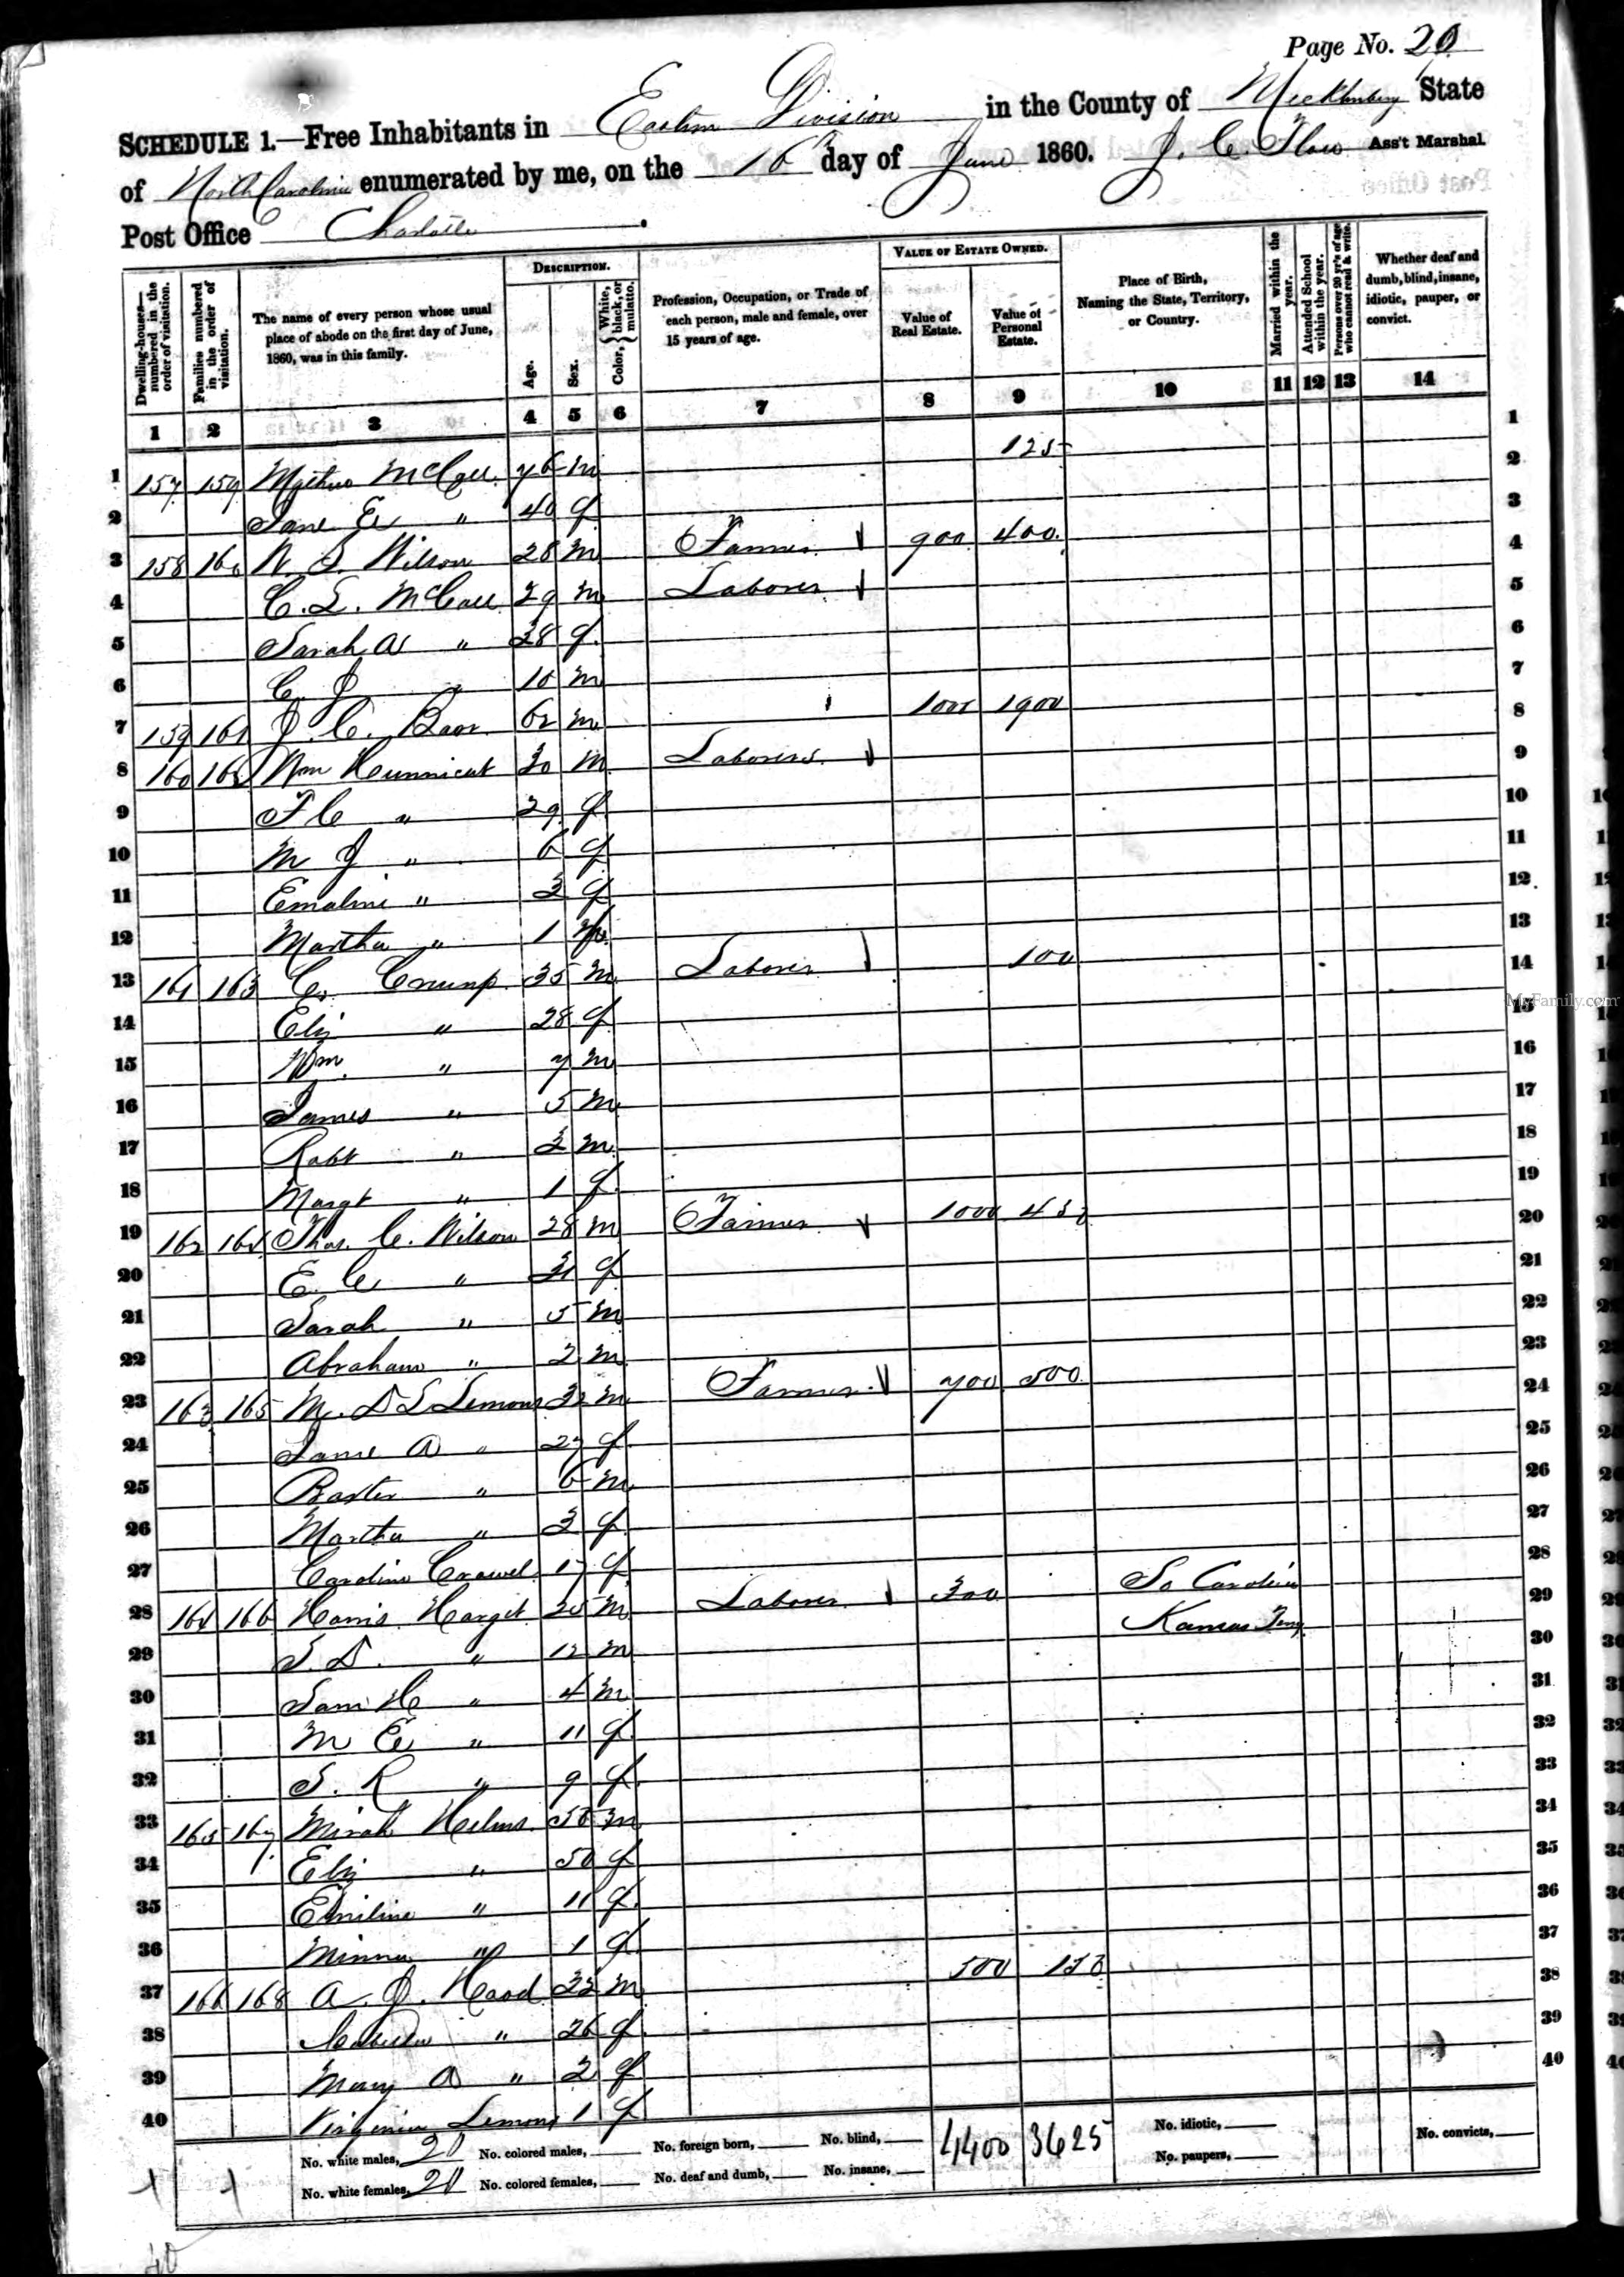 Page No. 20
SCHEDULE 1.—Free Inhabitants in Eastern Division in the County of Mecklenburg State
of North Carolina enumerated by me, on the 16 day of June 1860. J. C. Flow Ass't Marshal.
Post Office Charlotte
Dwelling-houses—numbered in the order of visitation.
Families numbered in the order of visitation.
The name of every person whose usual place of abode on the first day of June, 1860, was in this family.
DESCRIPTION.
Age.
Sex.
Color, { White, black, or mulatto.
Profession, Occupation, or Trade of each person, male and female, over 15 years of age.
VALUE OF ESTATE OWNED.
Value of Real Estate.
Value of Personal Estate.
Place of Birth, Naming the State, Territory, or Country.
Married within the year.
Attended School within the year.
Persons over 20 yr's of age who cannot read & write.
Whether deaf and dumb, blind, insane, idiotic, pauper, or convict.
1 2 3 4 5 6 7 8 9 10 11 12 13 14
1 157 159 McCall 76 m 125 1
2 Jane E " 40 f 2
3 158 160 Wilson 28 m Farmer 900 400 3
4 C. L. McCall 29 m Laborer 4
5 Sarah A " 28 f 5
6 C. J " 10 m 6
7 159 161 J. C. 62 m 1000 1900 7
8 160 162 Wm Hunnicut 30 m Laborer 8
9 F C " 29 f 9
10 M J " 6 f 10
11 Emaline " 3 f 11
12 Martha " 1 12
13 161 163 C. Crump 35 m Laborer 100 13
14 Eliz " 28 f 14
15 Wm " 7 m 15
16 James " 5 m 16
17 Robt " 3 m 17
18 Margt " 1 f 18
19 162 164 Thos. C. Wilson 28 m Farmer 1000 450 19
20 E. C " 31 f 20
21 Sarah " 5 m 21
22 Abraham " 2 m 22
23 163 165 M. D L Lemons 32 m Farmer 700 500 23
24 Jane A " 27 f 24
25 Baxter " 6 m 25
26 Martha " 3 f 26
27 Caroline Crowel 17 f 27
28 164 166 Harris Harget 35 m Laborer 300 So Carolina 28
29 S. D. " 12 m Kansas Terry 29
30 Sam H " 4 m 30
31 M E " 11 f 31
32 S. R " 9 f 32
33 165 167 Helms 56 m 33
34 Eliz " 50 f 34
35 Emiline " 11 f 35
36 Minna " 1 f 36
37 166 168 A. J. Hood 32 m 500 150 37
38 " 26 f 38
39 Mary A " 2 f 39
40 Virginia Lemons 1 f 40
No. white males, 20 No. colored males, No. foreign born, No. blind, 4400 3625 No. idiotic, No. convicts,
No. white females, 20 No. colored females, No. deaf and dumb, No. insane, No. paupers,
40
MyFamily.com